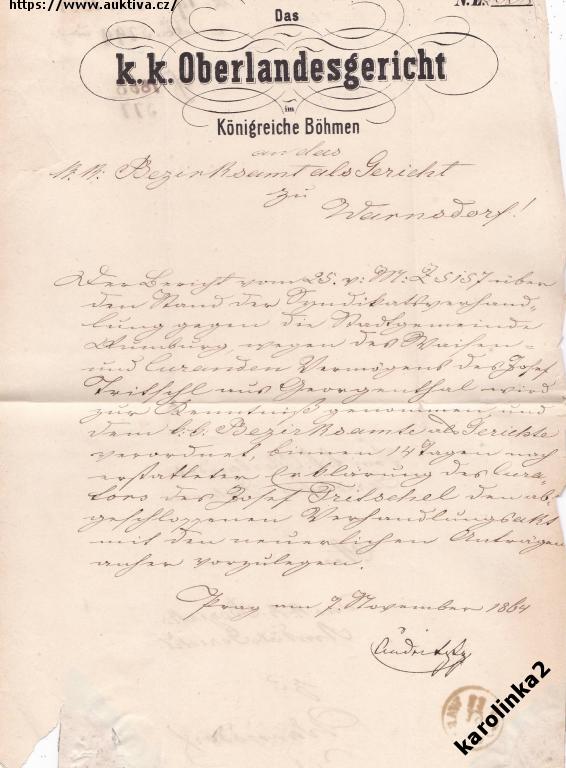 https://www.auktiva.cz/
Das
k.k. Oberlandesgericht
im
Königreiche Böhmen
an das
k. k. Bezirksamt als Gericht
zu
Warnsdorf!
Der Bericht vom 25. v: M: Z 5157 über
den Stand der Syndikatsverhand-
lung gegen die Stadtgemeinde
Rumburg, wegen des Waisen-
und Curanden Vermögens des Josef
Tritschl aus Georgenthal wird
zur Kenntniß genommen, und
dem k: k: Bezirksamte als Gerichte
verordnet, binnen 14 Tagen nach
erstatteter Erklärung des Cura-
tors des Josef Tritschel den ab-
geschlossenen Verhandlungsakt
mit den neuerlichen Anträgen
anher vorzulegen.
Prag am 7. November 1864
karolinka2